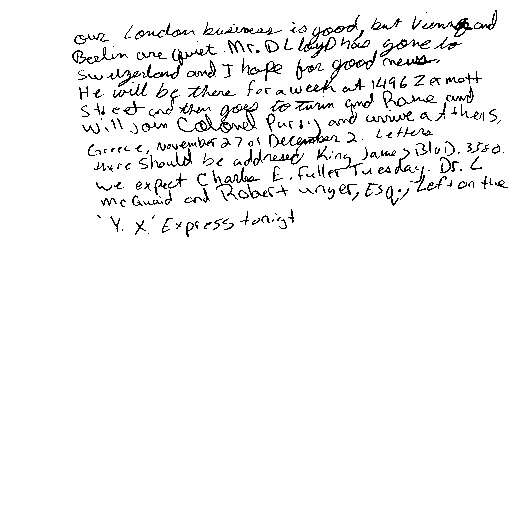 our London business is good, but Vienna and
Berlin are quiet. Mr. D Lloyd has gone to
Switzerland and I hope for good news.
He will be there for a week at 1496 Zermott
Street and then goes to turin and Rome and
will join Colonel Parry and arrive athens,
Greece, November 27 or December 2. Letters
there should be addressed King James Blvd. 3580.
we expect Charles E. Fuller Tuesday. Dr. L
McQuaid and Robert unger, Esq., left on the
'Y. X.' Express tonigt